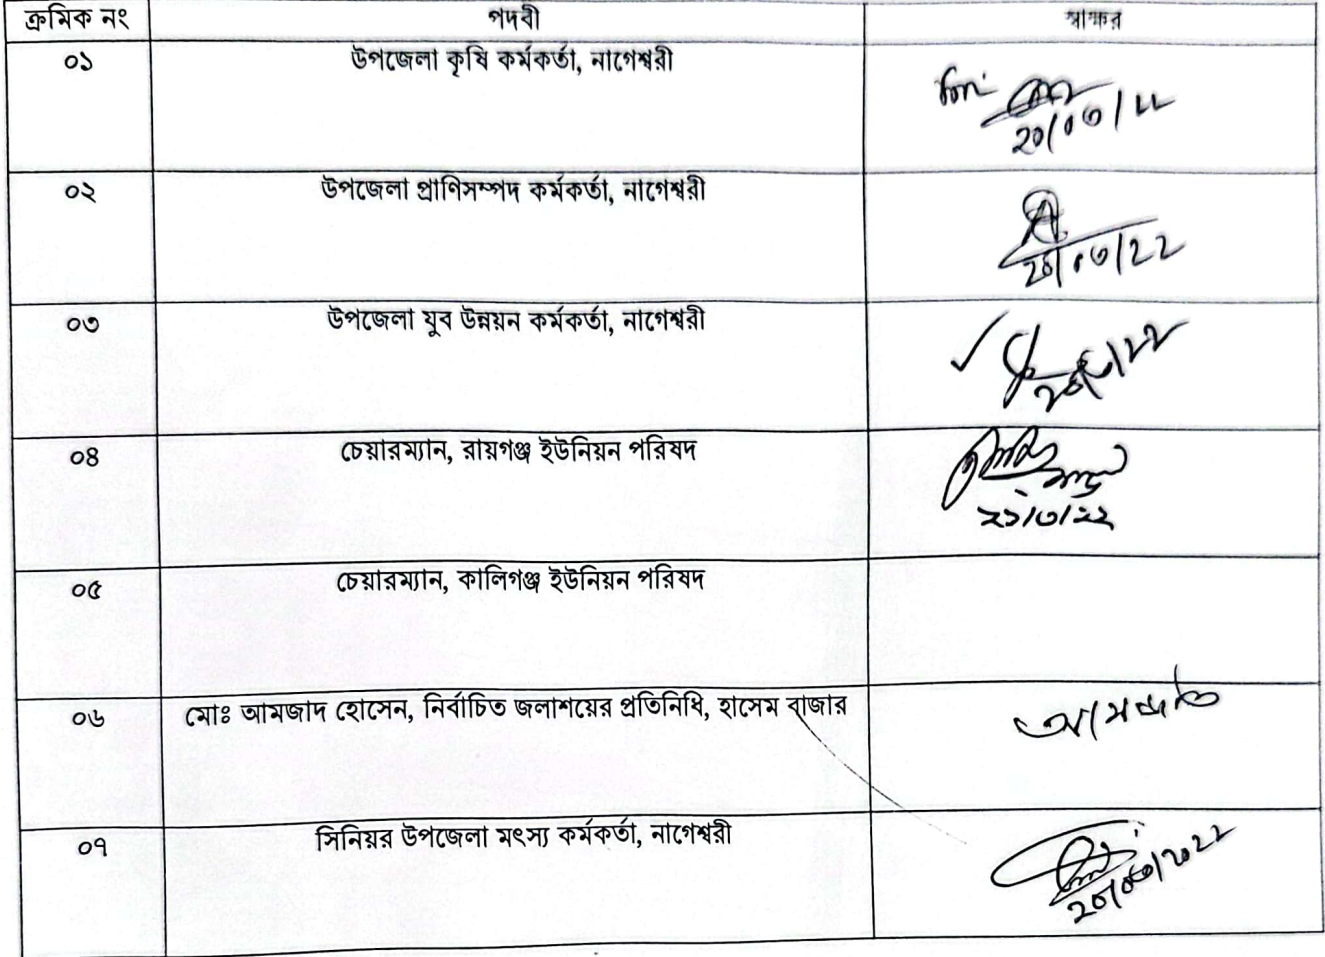 ক্রমিক নং পদবী স্বাক্ষর
০১ উপজেলা কৃষি কর্মকর্তা, নাগেশ্বরী
০২ উপজেলা প্রাণিসম্পদ কর্মকর্তা, নাগেশ্বরী
০৩ উপজেলা যুব উন্নয়ন কর্মকর্তা, নাগেশ্বরী
০৪ চেয়ারম্যান, রায়গঞ্জ ইউনিয়ন পরিষদ
২১/৩/২২
০৫ চেয়ারম্যান, কালিগঞ্জ ইউনিয়ন পরিষদ
০৬ মোঃ আমজাদ হোসেন, নির্বাচিত জলাশয়ের প্রতিনিধি, হাসেম বাজার
০৭ সিনিয়র উপজেলা মৎস্য কর্মকর্তা, নাগেশ্বরী